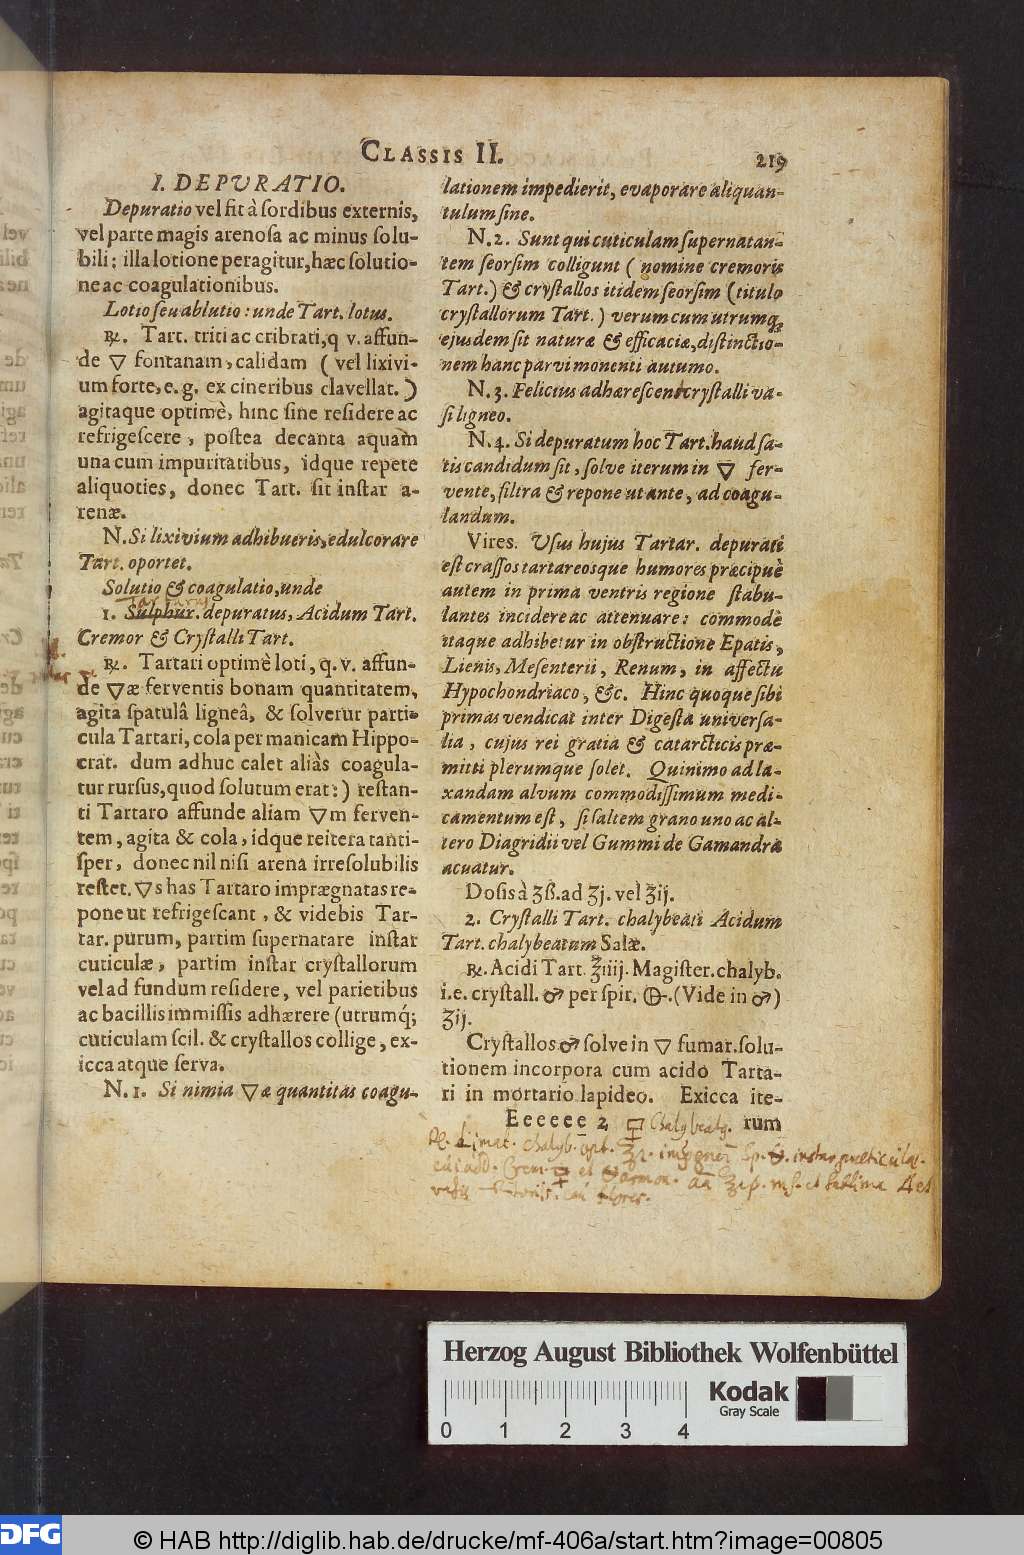 CLASSIS II. 219
I. DEPVRATIO.
Depuratio vel fit à ſordibus externis,
vel parte magis arenoſa ac minus ſolu-
bili; illa lotione peragitur, hæc ſolutio-
ne ac coagulationibus.
Lotio ſeu ablutio: unde Tart. lotus.
℞. Tart. triti ac cribrati, q v. affun-
de 🜄 fontanam, calidam ( vel lixivi-
um forte, e. g. ex cineribus clavellat. )
agitaque optimè, hinc ſine reſidere ac
refrigeſcere, poſtea decanta aquam
una cum impuritatibus, idque repete
aliquoties, donec Tart. ſit inſtar a-
renæ.
N. Si lixivium adhibueris, edulcorare
Tart. oportet.
Solutio & coagulatio, unde
Tartarus
1. Sulphur. depuratus, Acidum Tart.
Cremor & Cryſtalli Tart.
℞. Tartari optimè loti, q. v. affun-
de 🜄æ ferventis bonam quantitatem,
agita ſpatulâ ligneâ, & ſolvetur parti-
cula Tartari, cola per manicam Hippo-
crat. dum adhuc calet aliàs coagula-
tur rurſus, quod ſolutum erat: ) reſtan-
ti Tartaro affunde aliam 🜄m ferven-
tem, agita & cola, idque reitera tanti-
ſper, donec nil niſi arena irreſolubilis
reſtet. 🜄s has Tartaro imprægnatas re-
pone ut refrigeſcant, & videbis Tar-
tar. purum, partim ſupernatare inſtar
cuticulæ, partim inſtar cryſtallorum
vel ad fundum reſidere, vel parietibus
ac bacillis immiſſis adhærere (utrumq́;
cuticulam ſcil. & cryſtallos collige, ex-
icca atque ſerva.
N. 1. Si nimia 🜄æ quantitas coagu-
lationem impedierit, evaporare aliquan-
tulum ſine.
N. 2. Sunt qui cuticulam ſupernatan-
tem ſeorſim colligunt ( nomine cremoris
Tart.) & cryſtallos itidem ſeorſim (titulo
cryſtallorum Tart. ) verum cum utrumq;
ejusdem ſit naturæ & efficaciæ, diſtinctio-
nem hanc parvi momenti autumo.
N. 3. Felicius adhæreſcent cryſtalli va-
ſi ligneo.
N. 4. Si depuratum hoc Tart. haud ſa-
tis candidum ſit, ſolve iterum in 🜄 fer-
vente, filtra & repone ut ante, ad coagu-
landum.
Vires. Vſus hujus Tartar. depurati
eſt craſſos tartareosque humores præcipuè
autem in prima ventris regione ſtabu-
lantes incidere ac attenuare: commodè
itaque adhibetur in obſtructione Epatis,
Lienis, Meſenterii, Renum, in affectu
Hypochondriaco, &c. Hinc quoque ſibi
primas vendicat inter Digeſta univerſa-
lia, cujus rei gratia & catarcticis præ-
mitti plerumque ſolet. Quinimo ad la-
xandam alvum commodiſſimum medi-
camentum eſt, ſi ſaltem grano uno ac al-
tero Diagridii vel Gummi de Gamandra
acuatur.
Doſis à ʒß. ad ʒj. vel ʒij.
2. Cryſtalli Tart. chalybeati Acidum
Tart. chalybeatum Salæ.
℞. Acidi Tart. ℥iiij. Magiſter. chalyb.
i.e. cryſtall. ♂ per ſpir. 🜖. (Vide in ♂)
ʒij.
Cryſtallos ♂ ſolve in 🜄 fumar. ſolu-
tionem incorpora cum acido Tarta-
ri in mortario lapideo. Exicca ite-
Eeeeee 2 rum
🜿 Chalybeatq.
℞. Limat. chalyb. opt. instar
Crem. 🜿 et et sublima
flores.
Herzog August Bibliothek Wolfenbüttel
0 1 2 3 4
Kodak
Gray Scale
DFG
© HAB http://diglib.hab.de/drucke/mf-406a/start.htm?image=00805